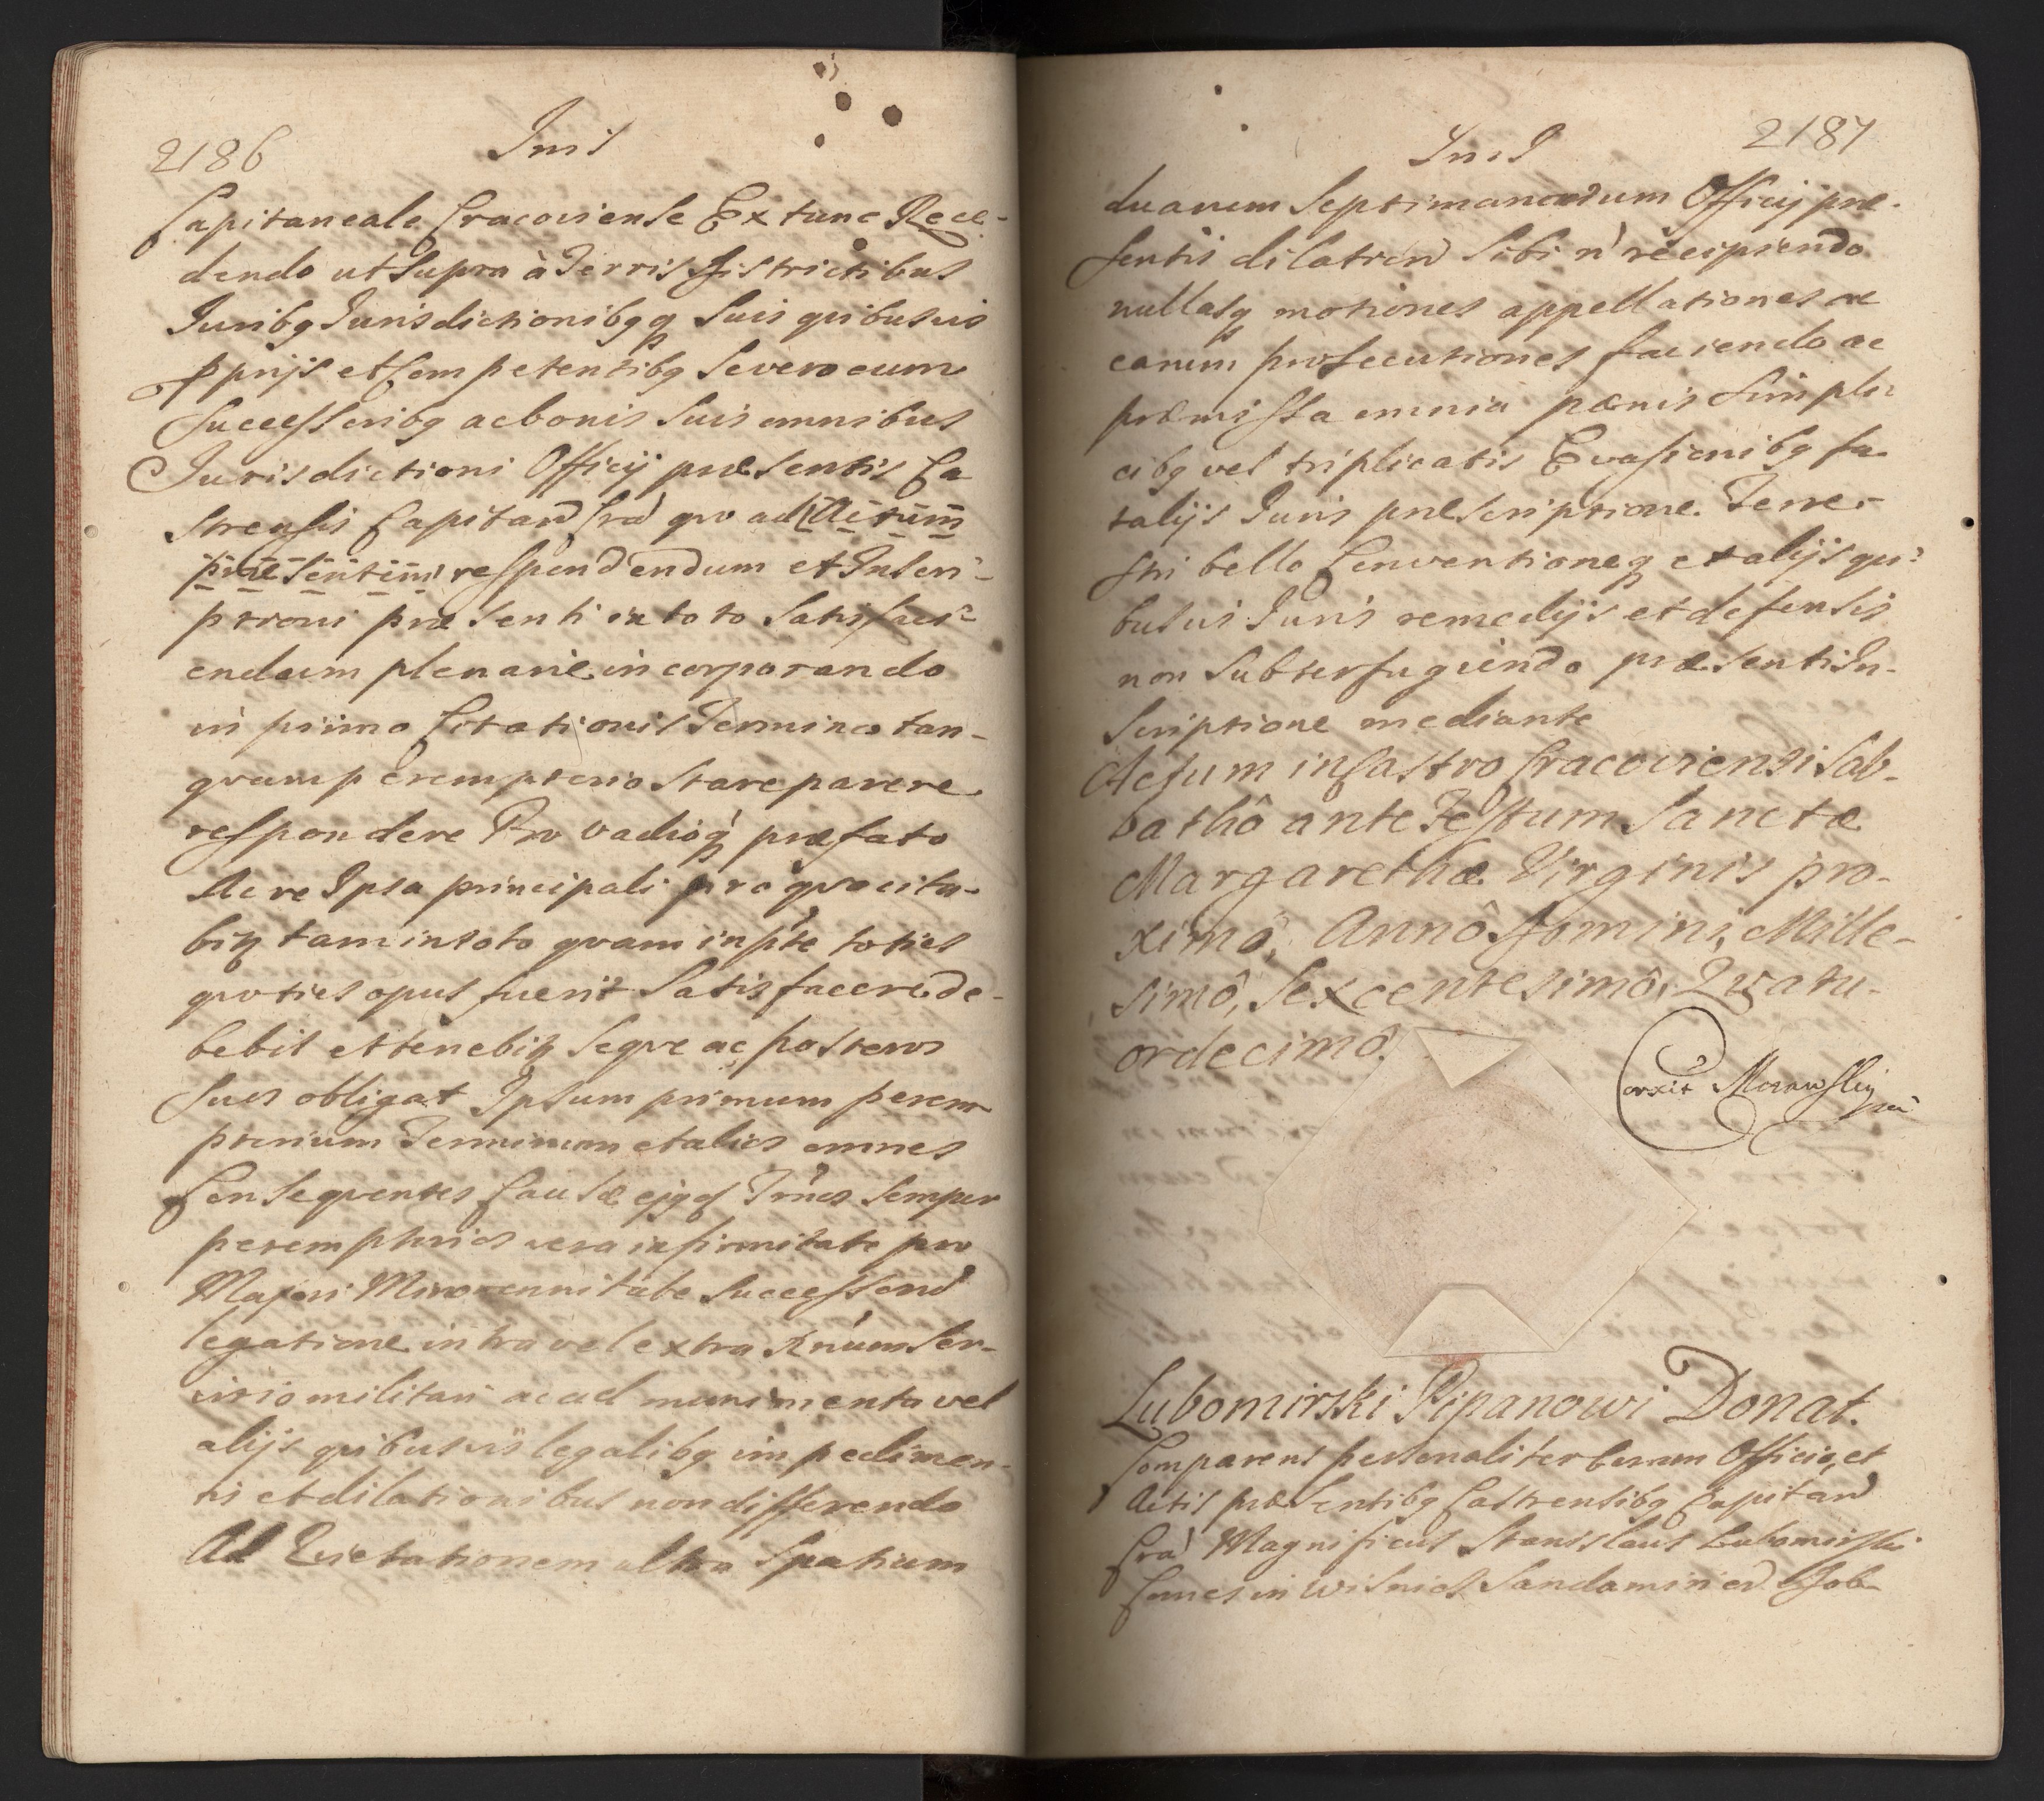 2186
Inis
Capitaneale Cracoviense Extunc Rece-
dendo ut supra à Terris Districtibus
Juribq Jurisdictionibqq suis quibusvis
pprijs et Competentibq se vero cum
Successoribq ac bonis suis omnibus
Jurisdictioni Officij præsentis Ca
strensis Capitan Cra quo ad Actum
præsentem respondendum et Inscri-
ptioni præsenti in toto satisfaci-
endum plenarie incorporando
in primo Citationis Termino tan-
qvam peremptorio stare parere
respondere Pro vadioq præfato
Ac re Ipsa principali pro qvo cita-
bit tam in toto qvam in pte toties
quoties opus fuerit satisfacere de-
bebit et tenebit seqve ac posteros
suos obligat Ipsum primum perem
ptorium Terminum et alios omnes
Conseqventes Causæ ejqd Tmos semper
peremptorios vera infirmitate pro
Majori Minorennitate Successorum
legatione intra vel extra Rnum Ser-
vitio militari ac ad munimenta vel
alijs quibusvis legalibq impedimen-
tis et dilationibus non differendo
Ad Evictationem ultra spatium
2187
Inis
duarum septimanarum Officij præ-
sentis dilation sibi n recipiendo
nullasq motiones appellationes ac
earum prosecutiones faciendo ac
præmissa omnia pænis simpli-
cibq vel triplicatis Evasionibq fa-
talijs Juris præscriptione Terre-
stri bello Conventioneq et alijs qui-
busvis Juris remedijs et defensis
non subterfugiendo præsenti In-
scriptione mediante
Actum in Castro Cracoviensi Sab-
bathô ante Festum Sanctæ
Margarethæ Virginis pro-
ximô, Annô Domini, Mille-
simô, Sexcentesimô, Qvatu-
ordecimô.
Corxit Morawskij
Lubomirski Ripanowi Donat.
Comparens personaliter coram Officio, et
Actis præsentibq Castrensibq Capitan
Cra Magnificus Stanislaus Lubomirski
Comes in Wisnicz Sandomirien Dob-